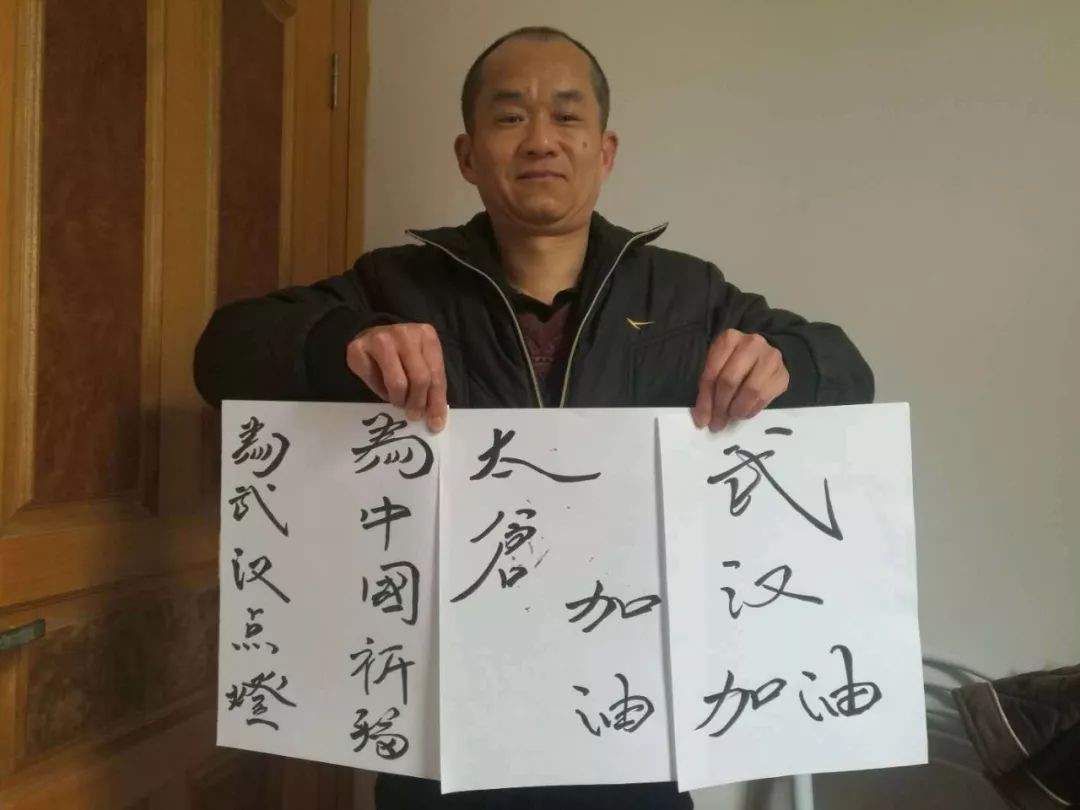 武汉加油
太倉
加油
為中國祈福
為武汉点燈